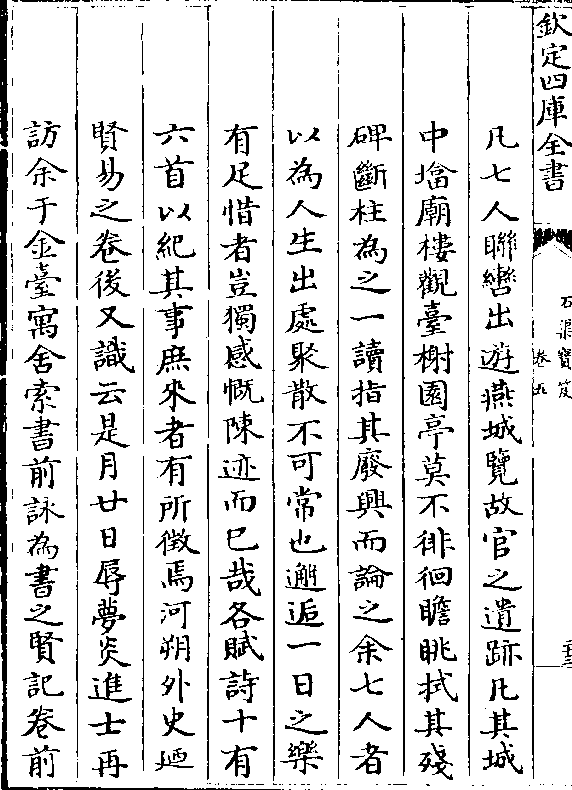 欽定四庫全書
石渠寶笈
卷五
凡七人聯轡出遊燕城覽故宫之遺跡凡其城
中塔廟樓觀臺榭園亭莫不徘徊瞻眺拭其殘
碑斷柱為之一讀指其廢興而論之余七人者
以為人生出處聚散不可常也邂逅一日之樂
有足惜者豈獨感慨陳迹而已哉各賦詩十有
六首以紀其事庶來者有所徵焉河朔外史迺
賢易之卷後又識云是月廿日辱夢炎進士再
訪余于金臺寓舍索書前詠為書之賢記卷前